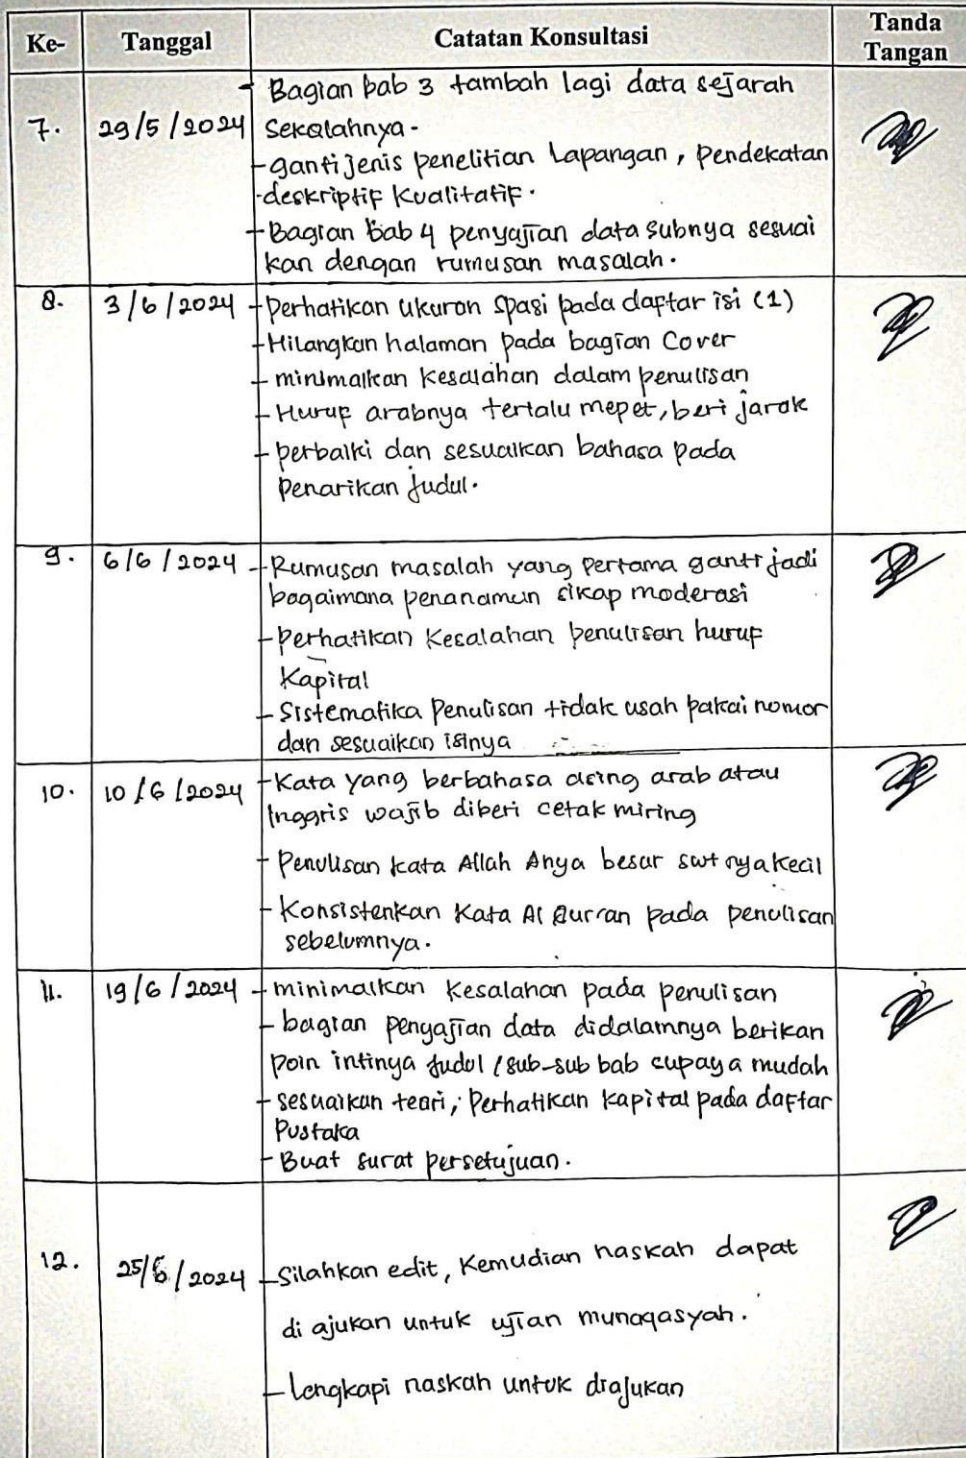 Ke- Tanggal Catatan Konsultasi Tanda Tangan
- Bagian bab 3 tambah lagi data sejarah
7. 29/5/2024 Sekolahnya.
- ganti jenis penelitian Lapangan, pendekatan
deskriptif Kualitatif.
- Bagian bab 4 penyajian data subnya sesuai
kan dengan rumusan masalah.
8. 3/6/2024 - Perhatikan ukuran spasi pada daftar isi (1)
- Hilangkan halaman pada bagian Cover
- minimalkan Kesalahan dalam penulisan
- Huruf arabnya terlalu mepet, beri jarak
- perbaiki dan sesuaikan bahasa pada
Penarikan judul.
9. 6/6/2024 - Rumusan masalah yang pertama ganti jadi
bagaimana penanaman sikap moderasi
- perhatikan Kesalahan penulisan huruf
Kapital
- Sistematika Penulisan tidak usah pakai nomor
dan sesuaikan isinya
10. 10/6/2024 - Kata yang berbahasa asing arab atau
Inggris wajib diberi cetak miring
- Penulisan kata Allah Anya besar swt nya kecil
- Konsistenkan Kata Al Qurran pada penulisan
sebelumnya.
11. 19/6/2024 - minimalkan Kesalahan pada penulisan
- bagian penyajian data didalamnya berikan
poin intinya judul / sub-sub bab supaya mudah
- sesuaikan teori, Perhatikan kapital pada daftar
Pustaka
- Buat surat persetujuan.
12. 25/6/2024 - Silahkan edit, Kemudian naskah dapat
di ajukan untuk ujian munaqasyah.
- Lengkapi naskah untuk diajukan